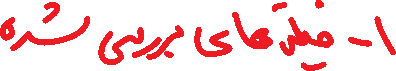 ۱- فیلترهای بررسی شده